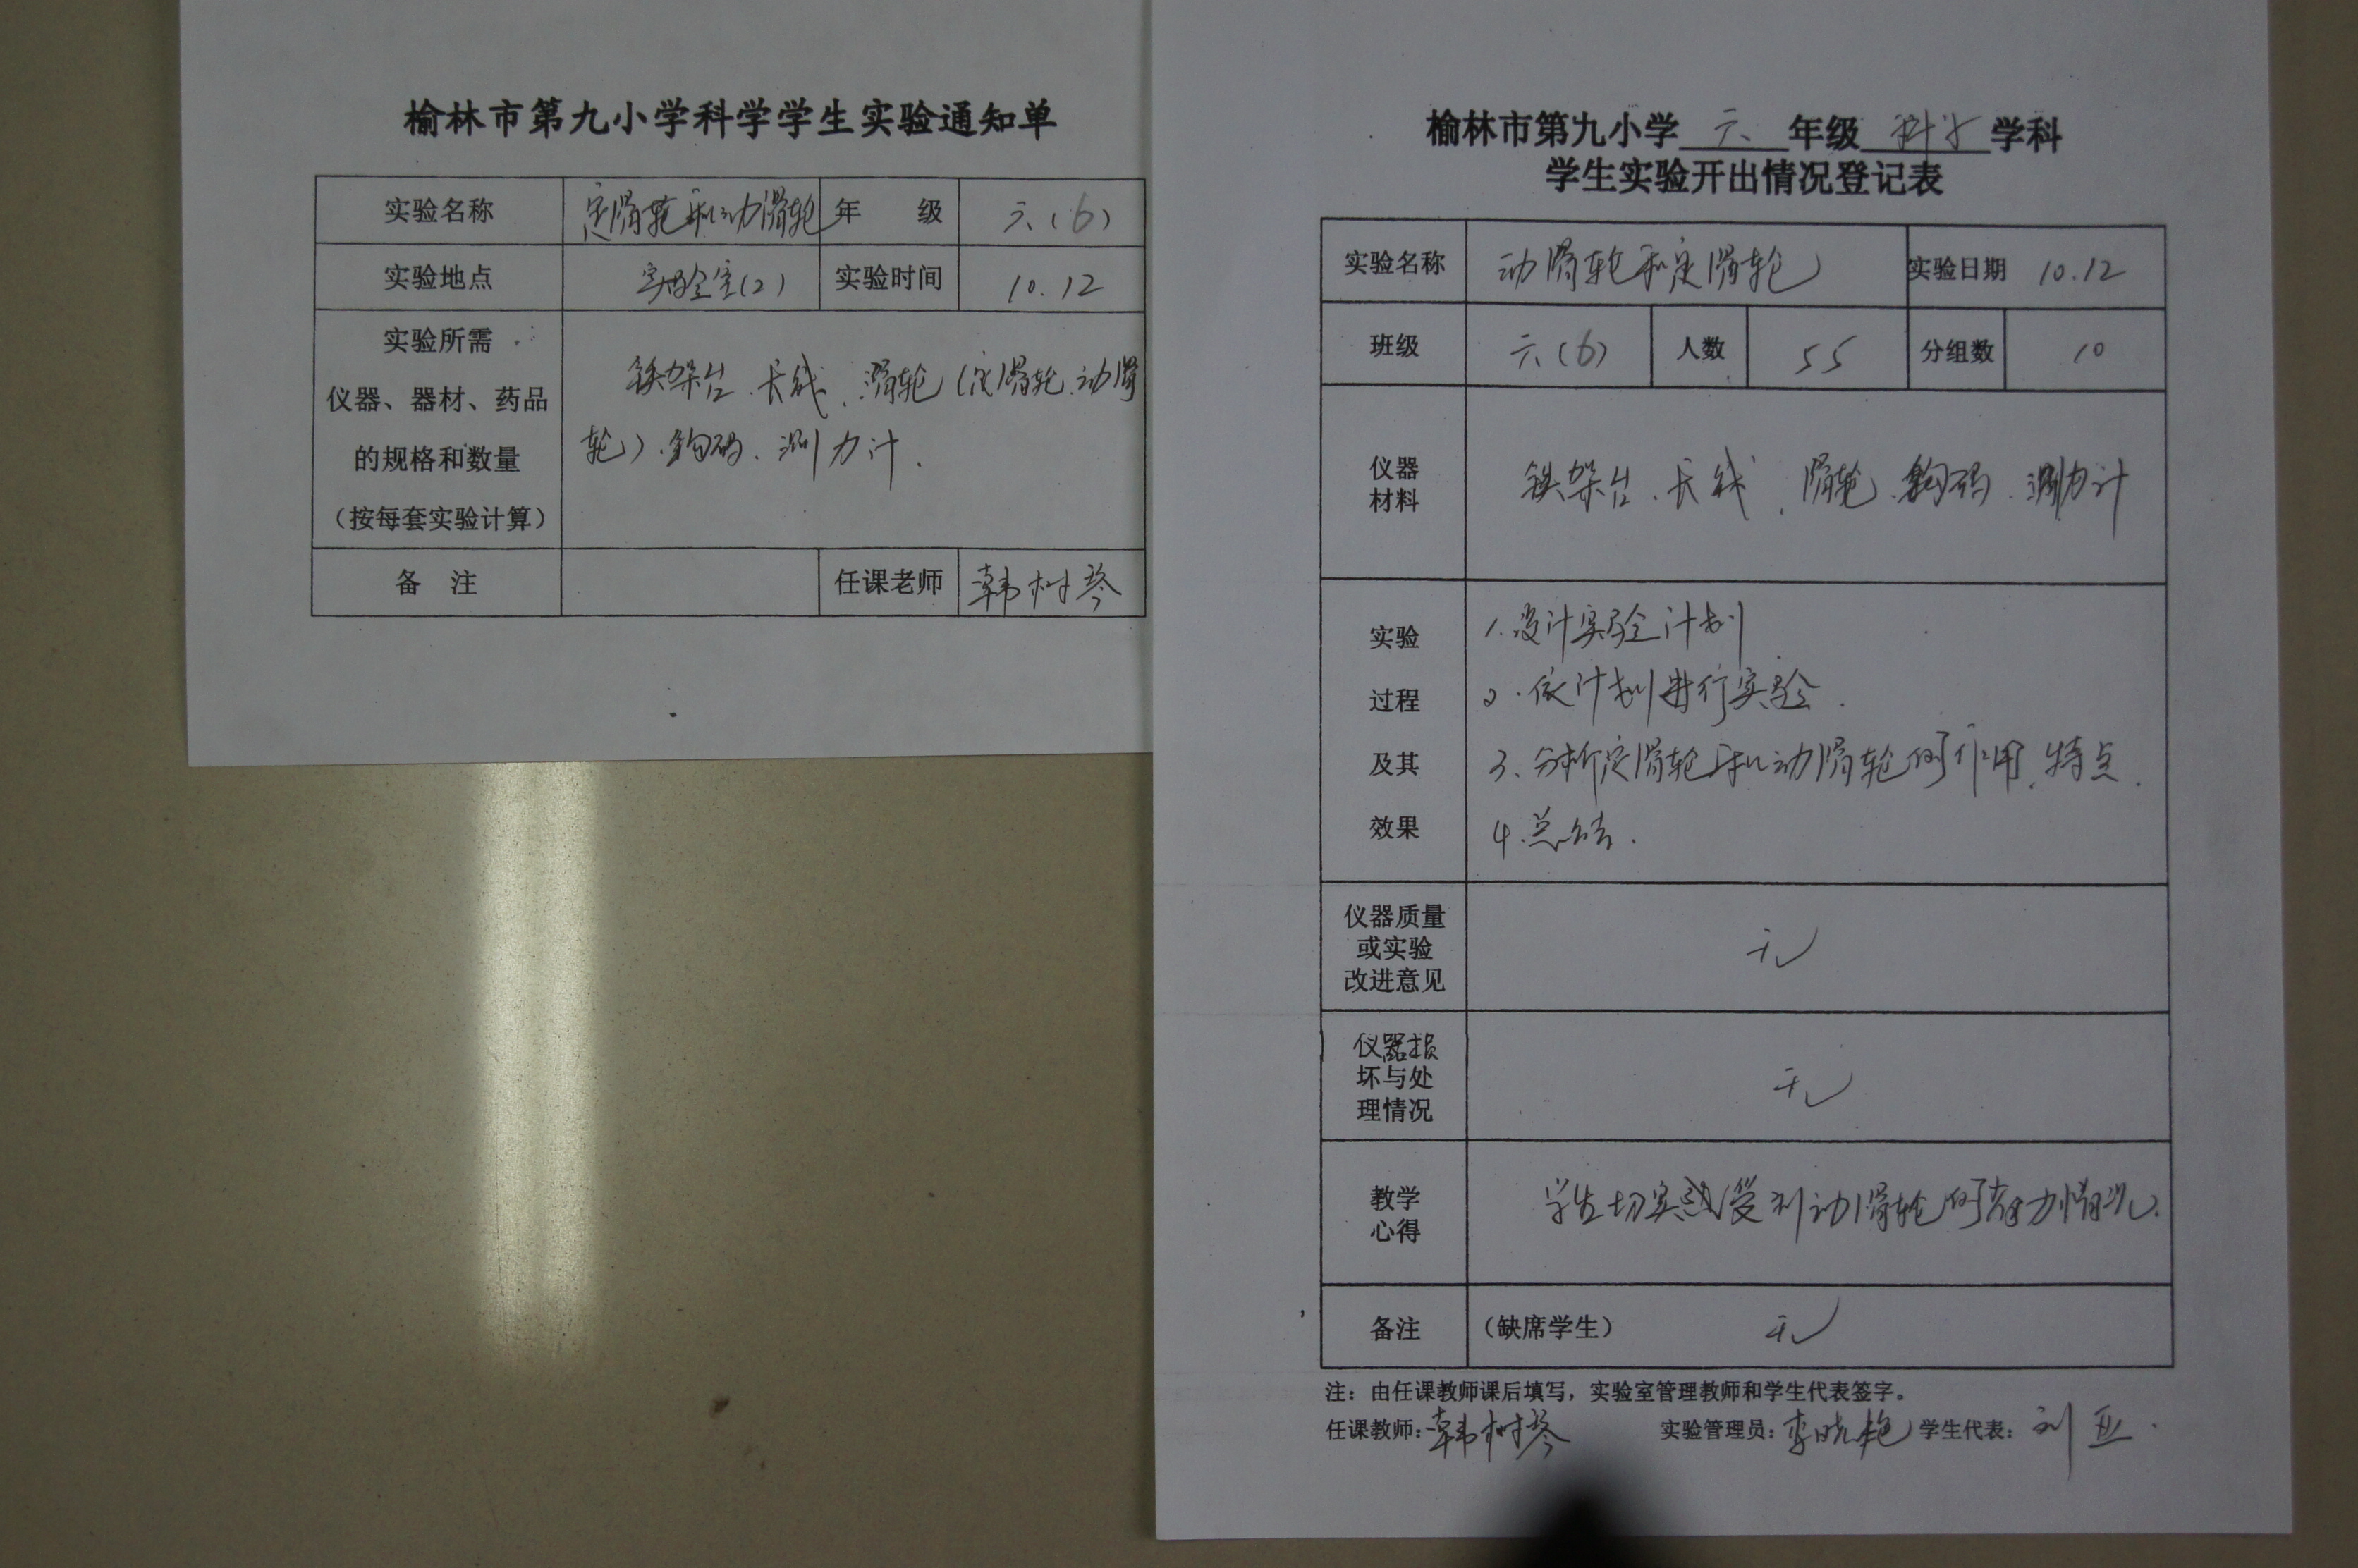 榆林市第九小学科学学生实验通知单
实验名称 定滑轮和动滑轮 年 级 六(6)
实验地点 实验室(2) 实验时间 10.12
实验所需
仪器、器材、药品
的规格和数量
(按每套实验计算)
铁架台、长线、滑轮(定滑轮、动滑
轮)、钩码、测力计.
备 注 任课老师 韩树琴
榆林市第九小学 六 年级 科学 学科
学生实验开出情况登记表
实验名称 动滑轮和定滑轮 实验日期 10.12
班级 六(6) 人数 55 分组数 10
仪器
材料
铁架台、长线、滑轮、钩码、测力计
实验
过程
及其
效果
1.设计实验计划
2.依计划进行实验.
3、分析定滑轮和动滑轮的作用、特点.
4.总结.
仪器质量
或实验
改进意见
无
仪器损
坏与处
理情况
无
教学
心得
学生切实感受到动滑轮的省力情况.
备注 (缺席学生) 无
注:由任课教师课后填写,实验室管理教师和学生代表签字。
任课教师:韩树琴 实验管理员:李晓艳 学生代表:刘亚.